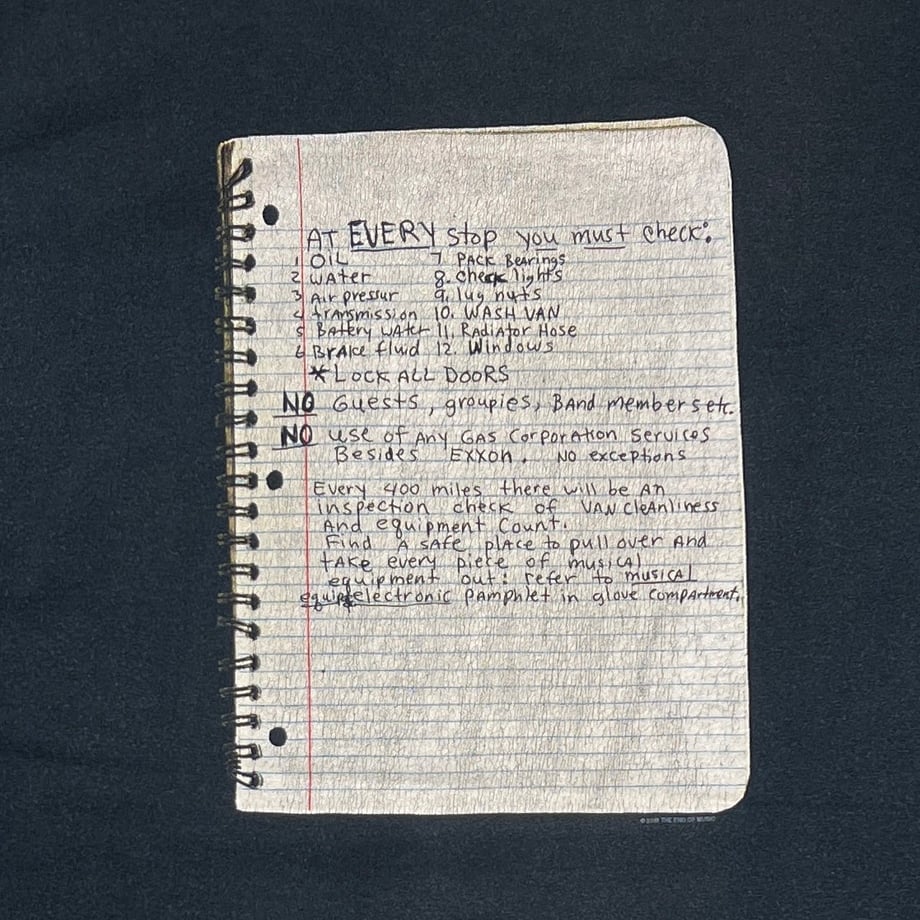 AT EVERY stop you must check:
1 OIL 7. PACK Bearings
2 water 8. check lights
3 Air pressur 9. lug nuts
4 transmission 10. WASH VAN
5 Battery water 11. Radiator Hose
6 Brake fluid 12. Windows
* LOCK ALL DOORS
NO Guests, groupies, BAnd members etc.
NO use of Any GAS Corporation Services
Besides Exxon. NO exceptions
Every 400 miles there will be An
inspection check of VAN cleAnliness
And equipment Count.
Find A sAfe place to pull over And
tAKe every piece of musicAl
equipment out: refer to musicAl
electronic pAmphlet in glove compArtment.
THE END OF MUSIC